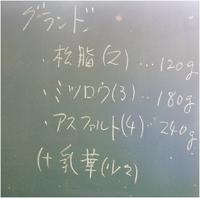 グランド
・松脂(2)…120g
・ミツロウ(3)…180g
・アスファルト(4)…240g
(+乳華(少々)